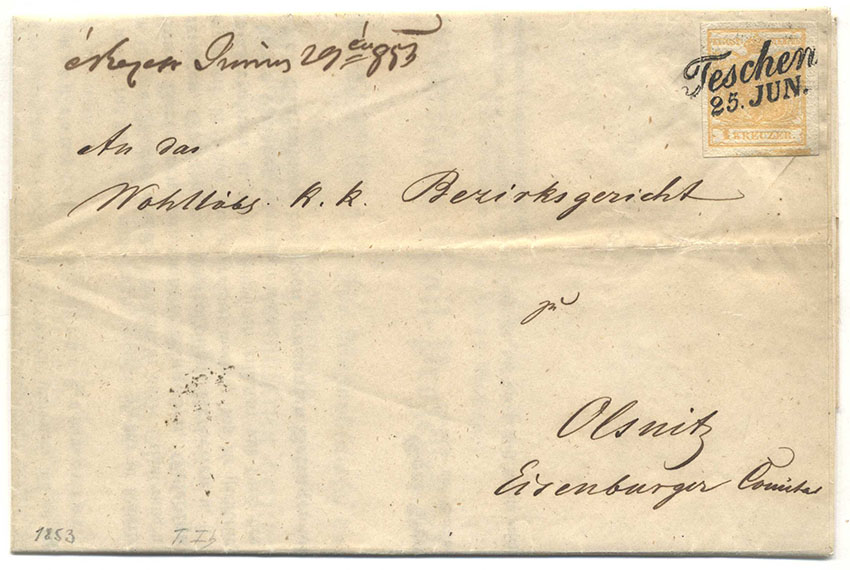 érkezett Junius 29én 853
Teschen
25. JUN.
1 KREUZER
An das
Wohllöbl. k. k. Bezirksgericht
zu
Olsnitz
Eisenburger Comitat
1853